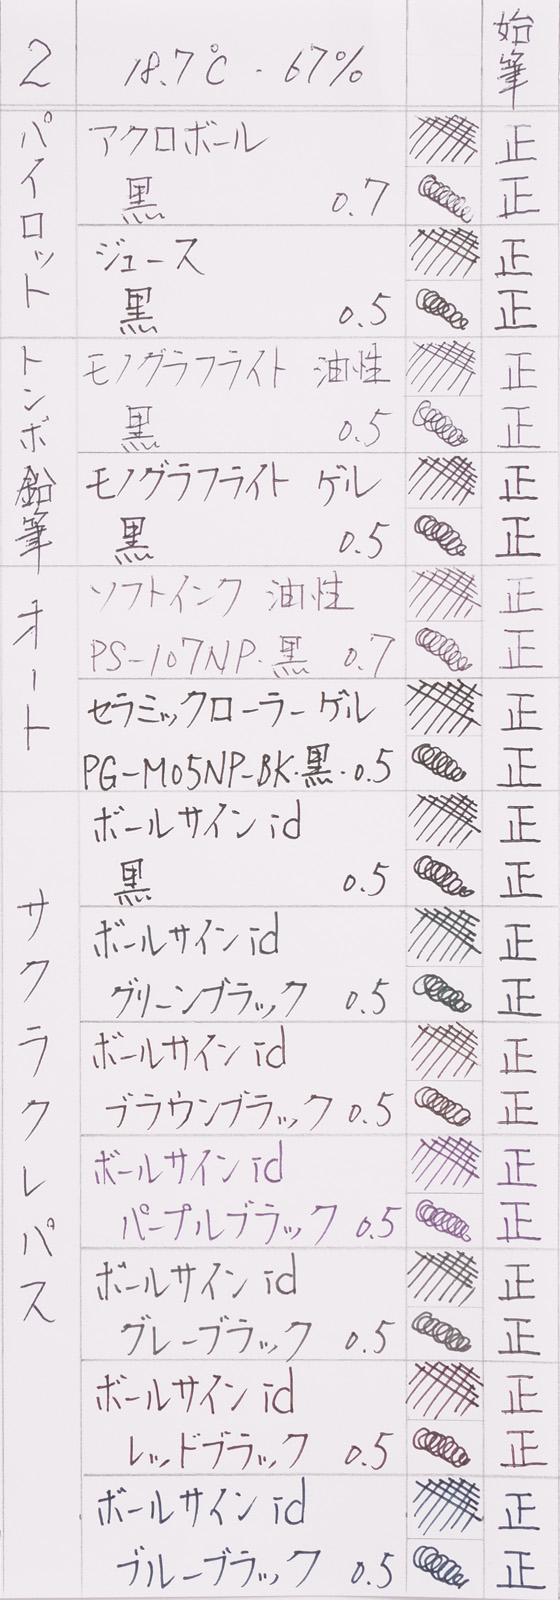 2 18.7℃ - 67% 始筆
パイロット
アクロボール 正
黒 0.7 正
ジュース 正
黒 0.5 正
トンボ鉛筆
モノグラフライト 油性 正
黒 0.5 正
モノグラフライト ゲル 正
黒 0.5 正
オート
ソフトインク 油性 正
PS-107NP・黒 0.7 正
セラミックローラーゲル 正
PG-M05NP-BK・黒・0.5 正
サクラクレパス
ボールサイン id 正
黒 0.5 正
ボールサイン id 正
グリーンブラック 0.5 正
ボールサイン id 正
ブラウンブラック 0.5 正
ボールサイン id 正
パープルブラック 0.5 正
ボールサイン id 正
グレーブラック 0.5 正
ボールサイン id 正
レッドブラック 0.5 正
ボールサイン id 正
ブルーブラック 0.5 正